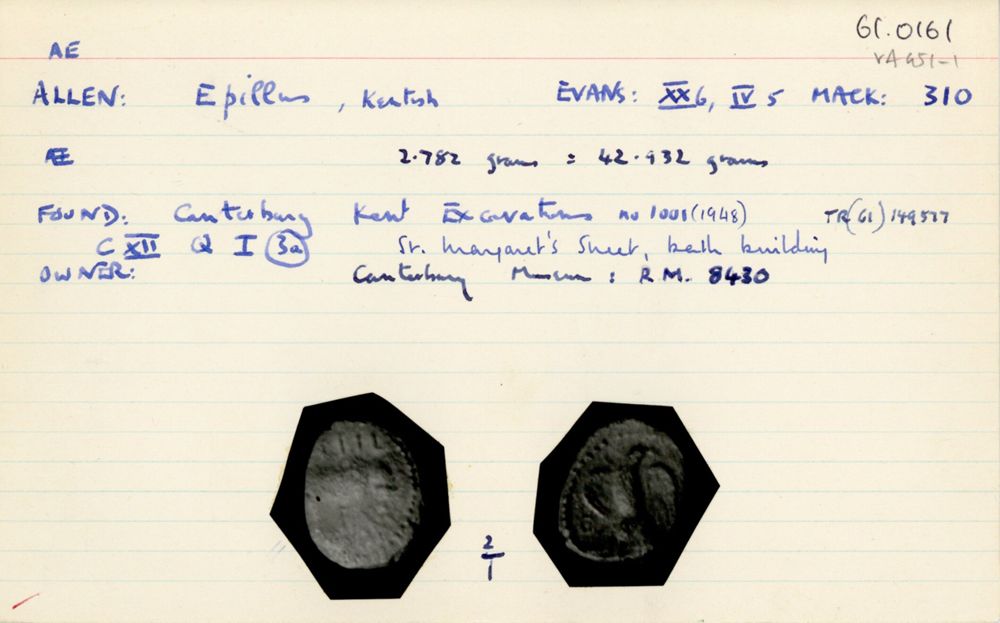 61.0161
VA 451-1
AE
ALLEN: Epillus, Kentish EVANS: XX 6, IV 5 MACK: 310
Æ 2.782 grams = 42.932 grams
FOUND: Canterbury Kent Excavations no 1001 (1948) TR(61)149577
C XII Q I 3a St. Margaret's Street, bath building
OWNER: Canterbury Museum: R M. 8430
EPIL
2
1